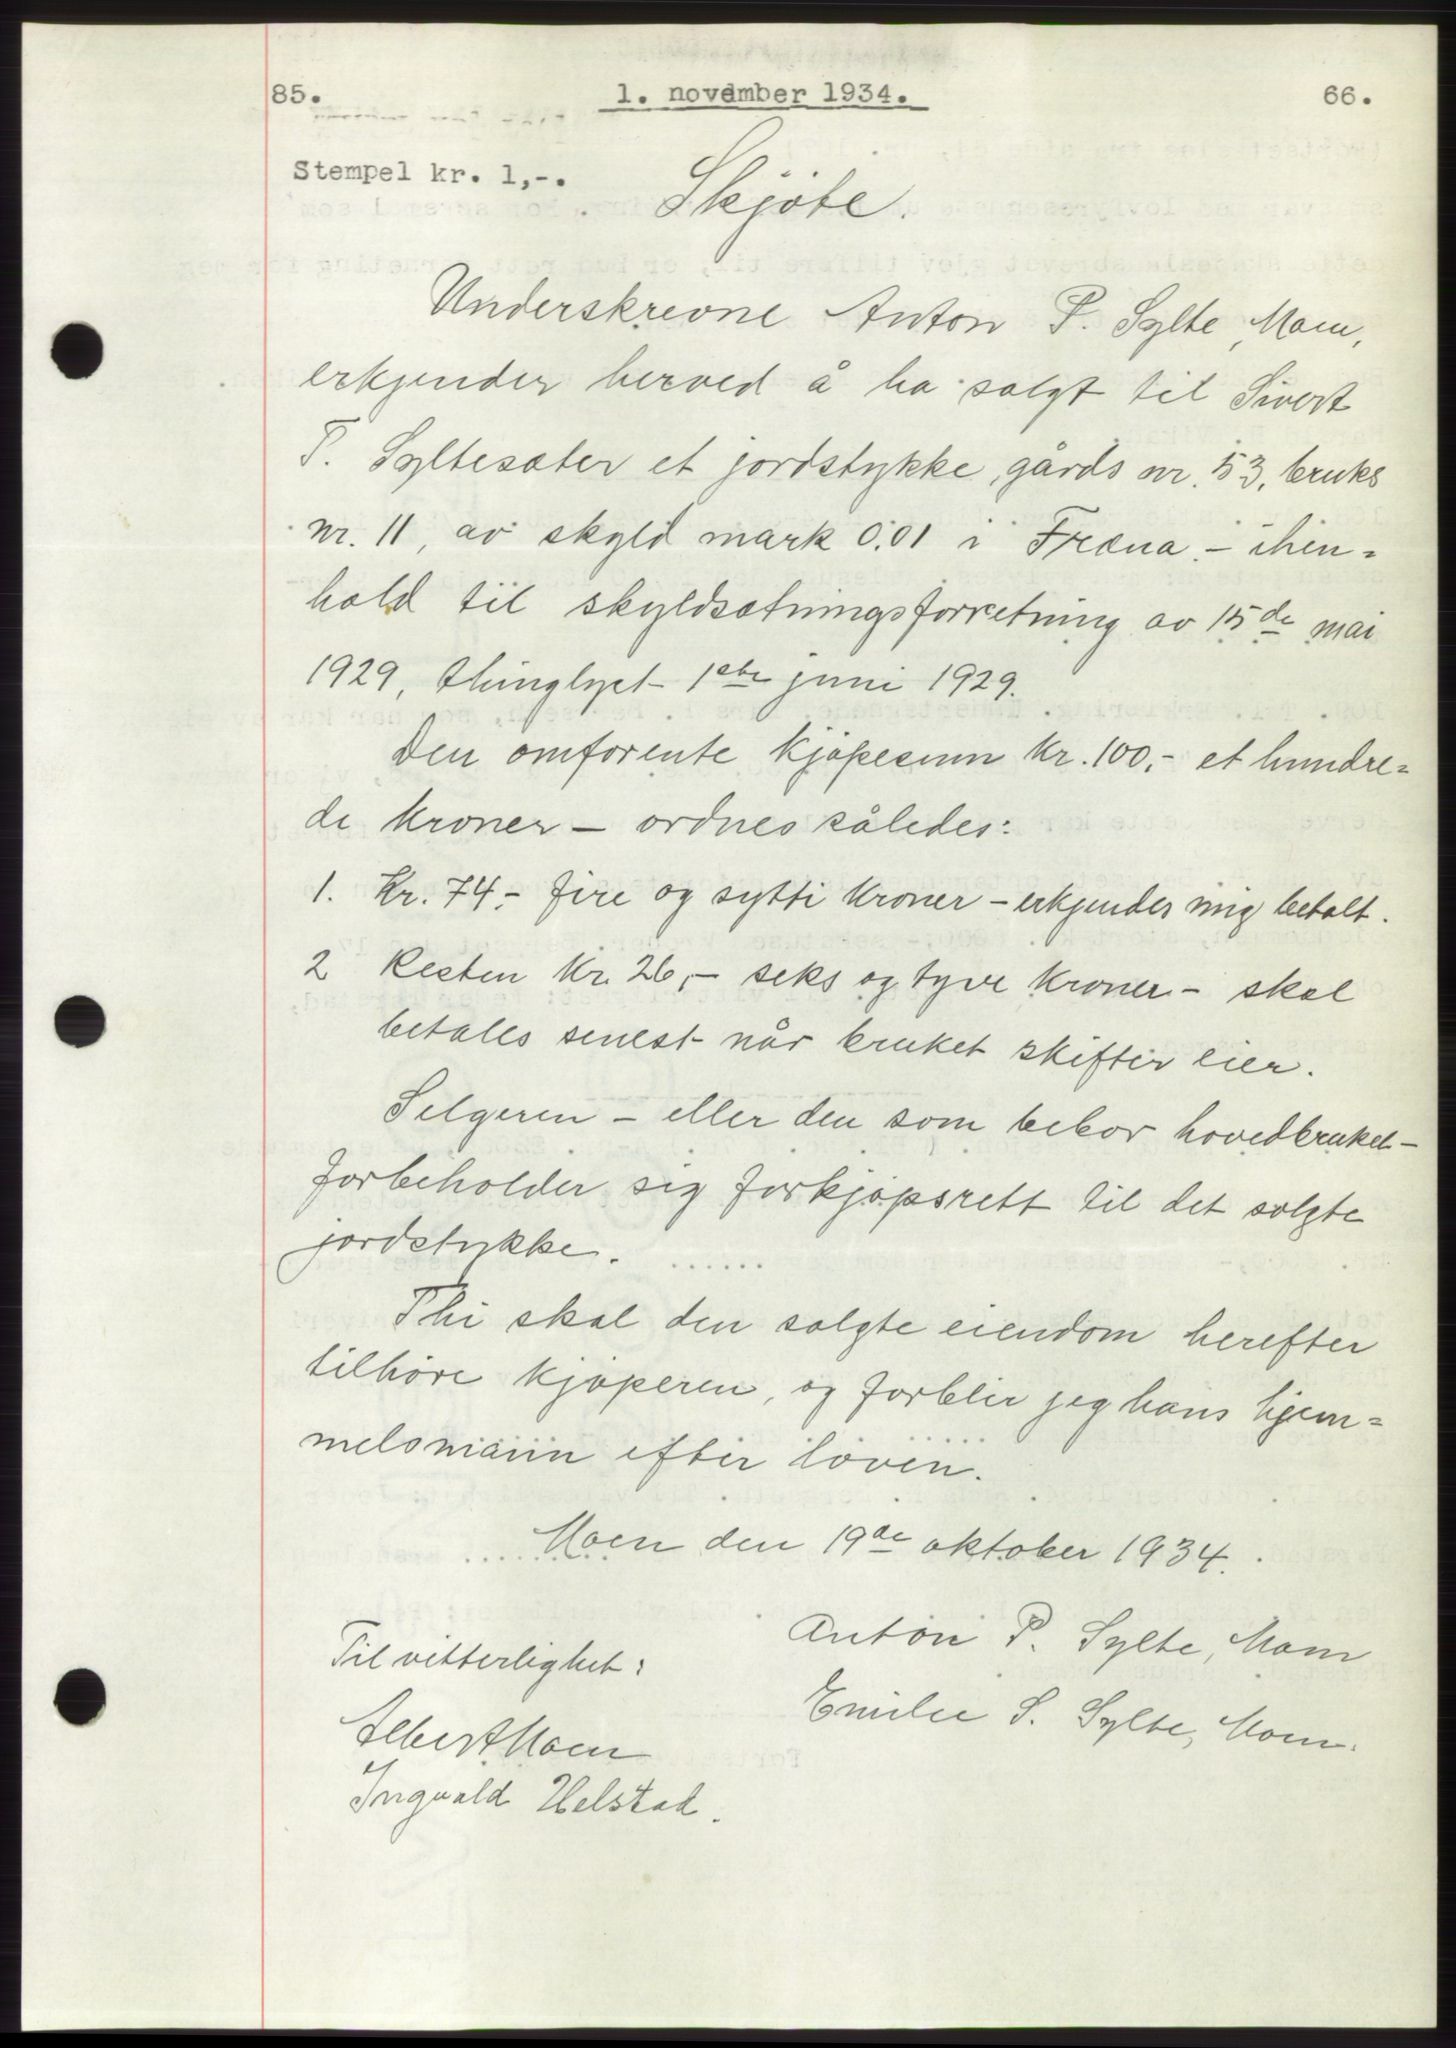 85. 1. november 1934. 66.
Stempel kr. 1,-.
Skjöte.
Underskrevne Anton P. Sylte, Moen,
erkjender herved å ha solgt til Sivert
T. Syltesæter et jordstykke, gårds nr. 53, bruks
nr. 11, av skyld mark 0.01 i Fræna. - ihen=
hold til skyldsætningsforretning av 15de mai
1929, thinglyst 1ste juni 1929.
Den omforente kjöpesum Kr. 100,- et hundre=
de kroner - ordnes således:
1. Kr. 74,- fire og sytti kroner - erkjendes mig betalt.
2 Resten Kr. 26,- seks og tyve kroner - skal
betales senest når bruket skifter eier.
Selgeren - eller den som bebor hovedbruket -
forbeholder sig forkjöpsrett til det solgte
jordstykke.
Thi skal den solgte eiendom herefter
tilhöre kjöperen, og forblir jeg hans hjem=
melsmann efter loven.
Moen den 19de oktober 1934.
Anton P. Sylte, Moen
Emilie S. Sylte, Moen.
Til vitterlighet:
Albert Moen
Ingvald Helstad.